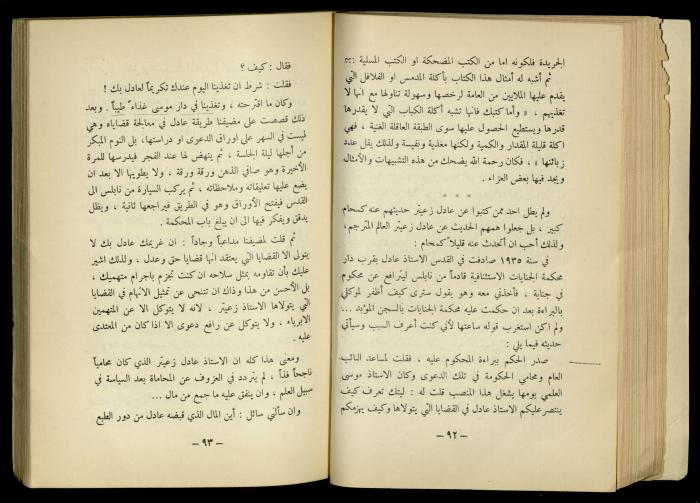 الجريدة فلكونه اما من الكتب المضحكة او الكتب المسلية :ـــ
ثم أشبه له أمثال هذا الكتاب بأكلة المدمس او الفلافل التي
يقدم عليها الملايين من العامة لرخصها وسهولة تناولها مع انها لا
تغذيهم ، « وأما كتبك فانها تشبه أكلة الكباب التي لا يقدرها
قدرها ويستطيع الحصول عليها سوى الطبقة العاقلة الغنية ، فهي
اكلة قليلة المقدار والكمية ولكنها مغذية ونفيسة ولذلك يقل عدد
زبائنها » ، فكان رحمة الله يضحك من هذه التشبيهات والأمثال
ويجد فيها بعض العزاء .
* * *
ولم يطل احد ممن كتبوا عن عادل زعيتر حديثهم عنه كمحام
كبير ، بل جعلوا همهم الحديث عن عادل زعيتر العالم المترجم ،
ولذلك أحب ان أتحدث عنه قليلاً كمحام :
في سنة ١٩٣٥ صادفت في القدس الاستاذ عادل بقرب دار
محكمة الجنايات الاستئنافية قادماً من نابلس ليترافع عن محكوم
في جناية ، فأخذني معه وهو يقول سترى كيف أظفر لموكلي
بالبراءة بعد ان حكمت عليه محكمة الجنايات بالسجن المؤبد ...
ولم اكن استغرب قوله ساعتها لأني كنت أعرف السبب وسيأتي
حديثه فيما يلي :
صدر الحكم ببراءة المحكوم عليه ، فقلت لمساعد النائب
العام ومحامي الحكومة في تلك الدعوى وكان الاستاذ موسى
العلمي يومها يشغل هذا المنصب قلت له : ليتك تعرف كيف
ينتصر عليكم الاستاذ عادل في القضايا التي يتولاها وكيف يهزمكم
– ٩٢ –
فقال : كيف ؟
فقلت : شرط ان تغذينا اليوم عندك تكريماً لعادل بك !
وكان ما اقترحته ، وتغذينا في دار موسى غذاء طيباً . وبعد
ذلك قصصت على مضيفنا طريقة عادل في معالجة قضاياه وهي
ليست في السهر على اوراق الدعوى او دراستها ، بل النوم المبكر
من أجلها ليلة الجلسة ، ثم ينهض لها عند الفجر فيدرسها للمرة
الأخيرة وهو صافي الذهن ورقة ورقة ، ولا يطويها الا بعد ان
يضع عليها تعليقاته وملاحظاته ، ثم يركب السيارة من نابلس الى
القدس فيفتح الأوراق وهو في الطريق فيراجعها ثانية ، ويظل
يدقق ويفكر فيها الى ان يبلغ باب المحكمة .
ثم قلت لمضيفنا مداعباً وجاداً : ان غريمك عادل بك لا
يتولى الا القضايا التي يعتقد انها قضايا حق وعدل ، ولذلك اشير
عليك بأن تقاومه بمثل سلاحه ان كنت تجزم باجرام متهميك ،
بل الأحسن من هذا وذاك ان تتنحى عن تمثيل الاتهام في القضايا
التي يتولاها الاستاذ زعيتر ، لانه لا يتوكل الا عن المتهمين
الابرياء ، ولا يتوكل عن رافع دعوى الا اذا كان من المعتدى
عليه .
ومعنى هذا كله ان الاستاذ عادل زعيتر الذي كان محامياً
ناجحاً فذاً ، لم يتردد في العزوف عن المحاماة بعد السياسة في
سبيل العلم ، وان ينفق عليه ما جمع من مال ...
وان سألني سائل : أين المال الذي قبضه عادل من دور الطبع
– ٩٣ –